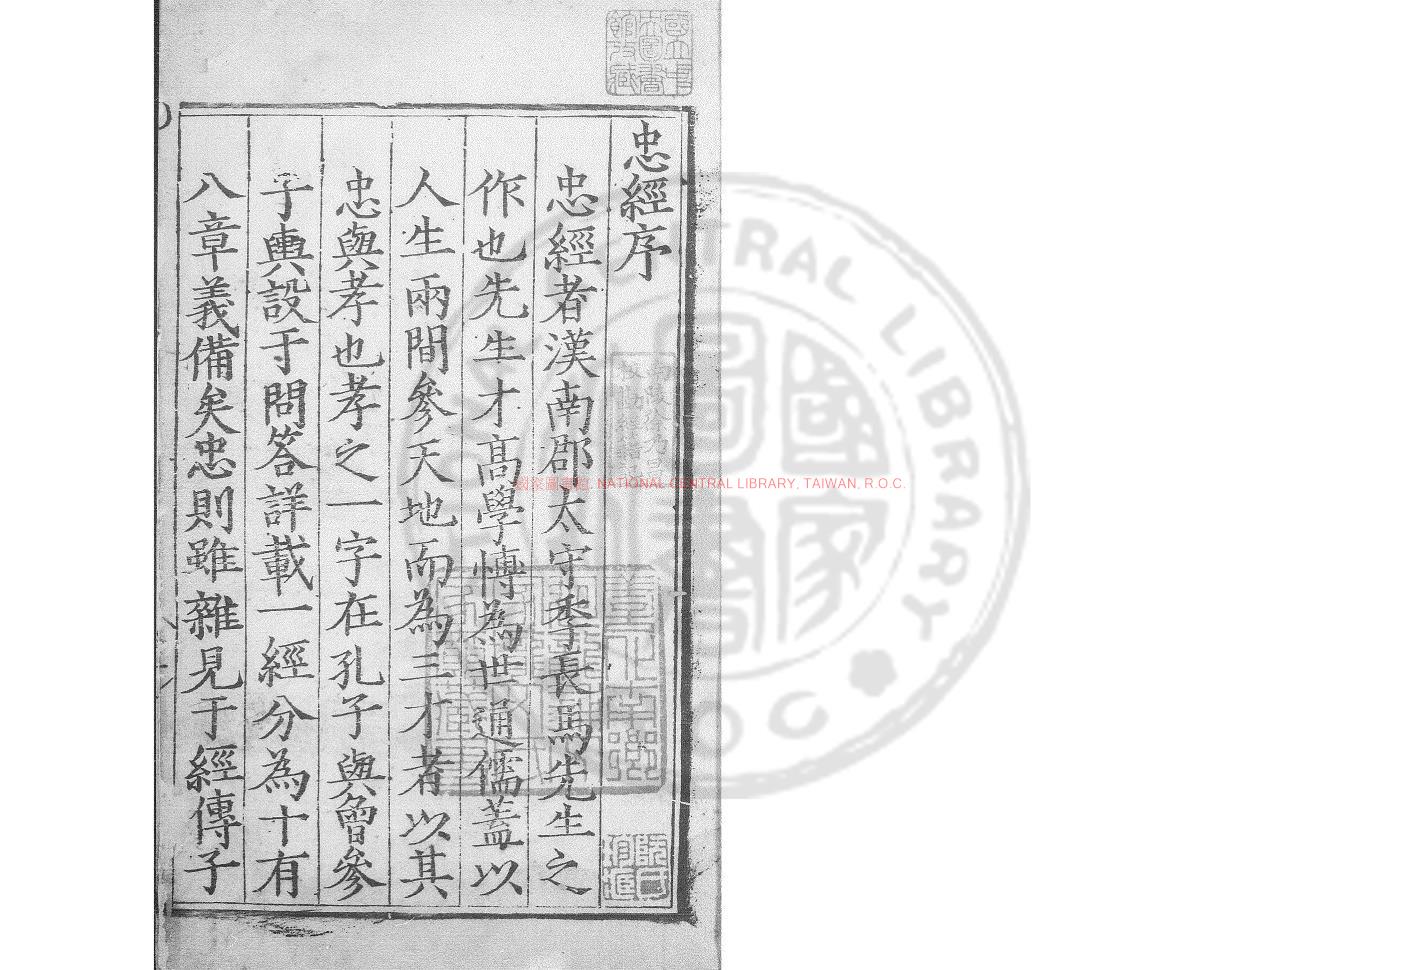 忠經序
忠經者漢南郡太守季長馬先生之
作也先生才髙學愽為世通儒蓋以
人生兩間參天地而為三才者以其
忠與孝也孝之一字在孔子與曾參
子輿設于問答詳載一經分為十有
八章義備矣忠則雖雜見于經傳子
國家圖書館, NATIONAL CENTRAL LIBRARY, TAIWAN, R.O.C.
國家圖書
CENTRAL LIBRARY
R.O.C